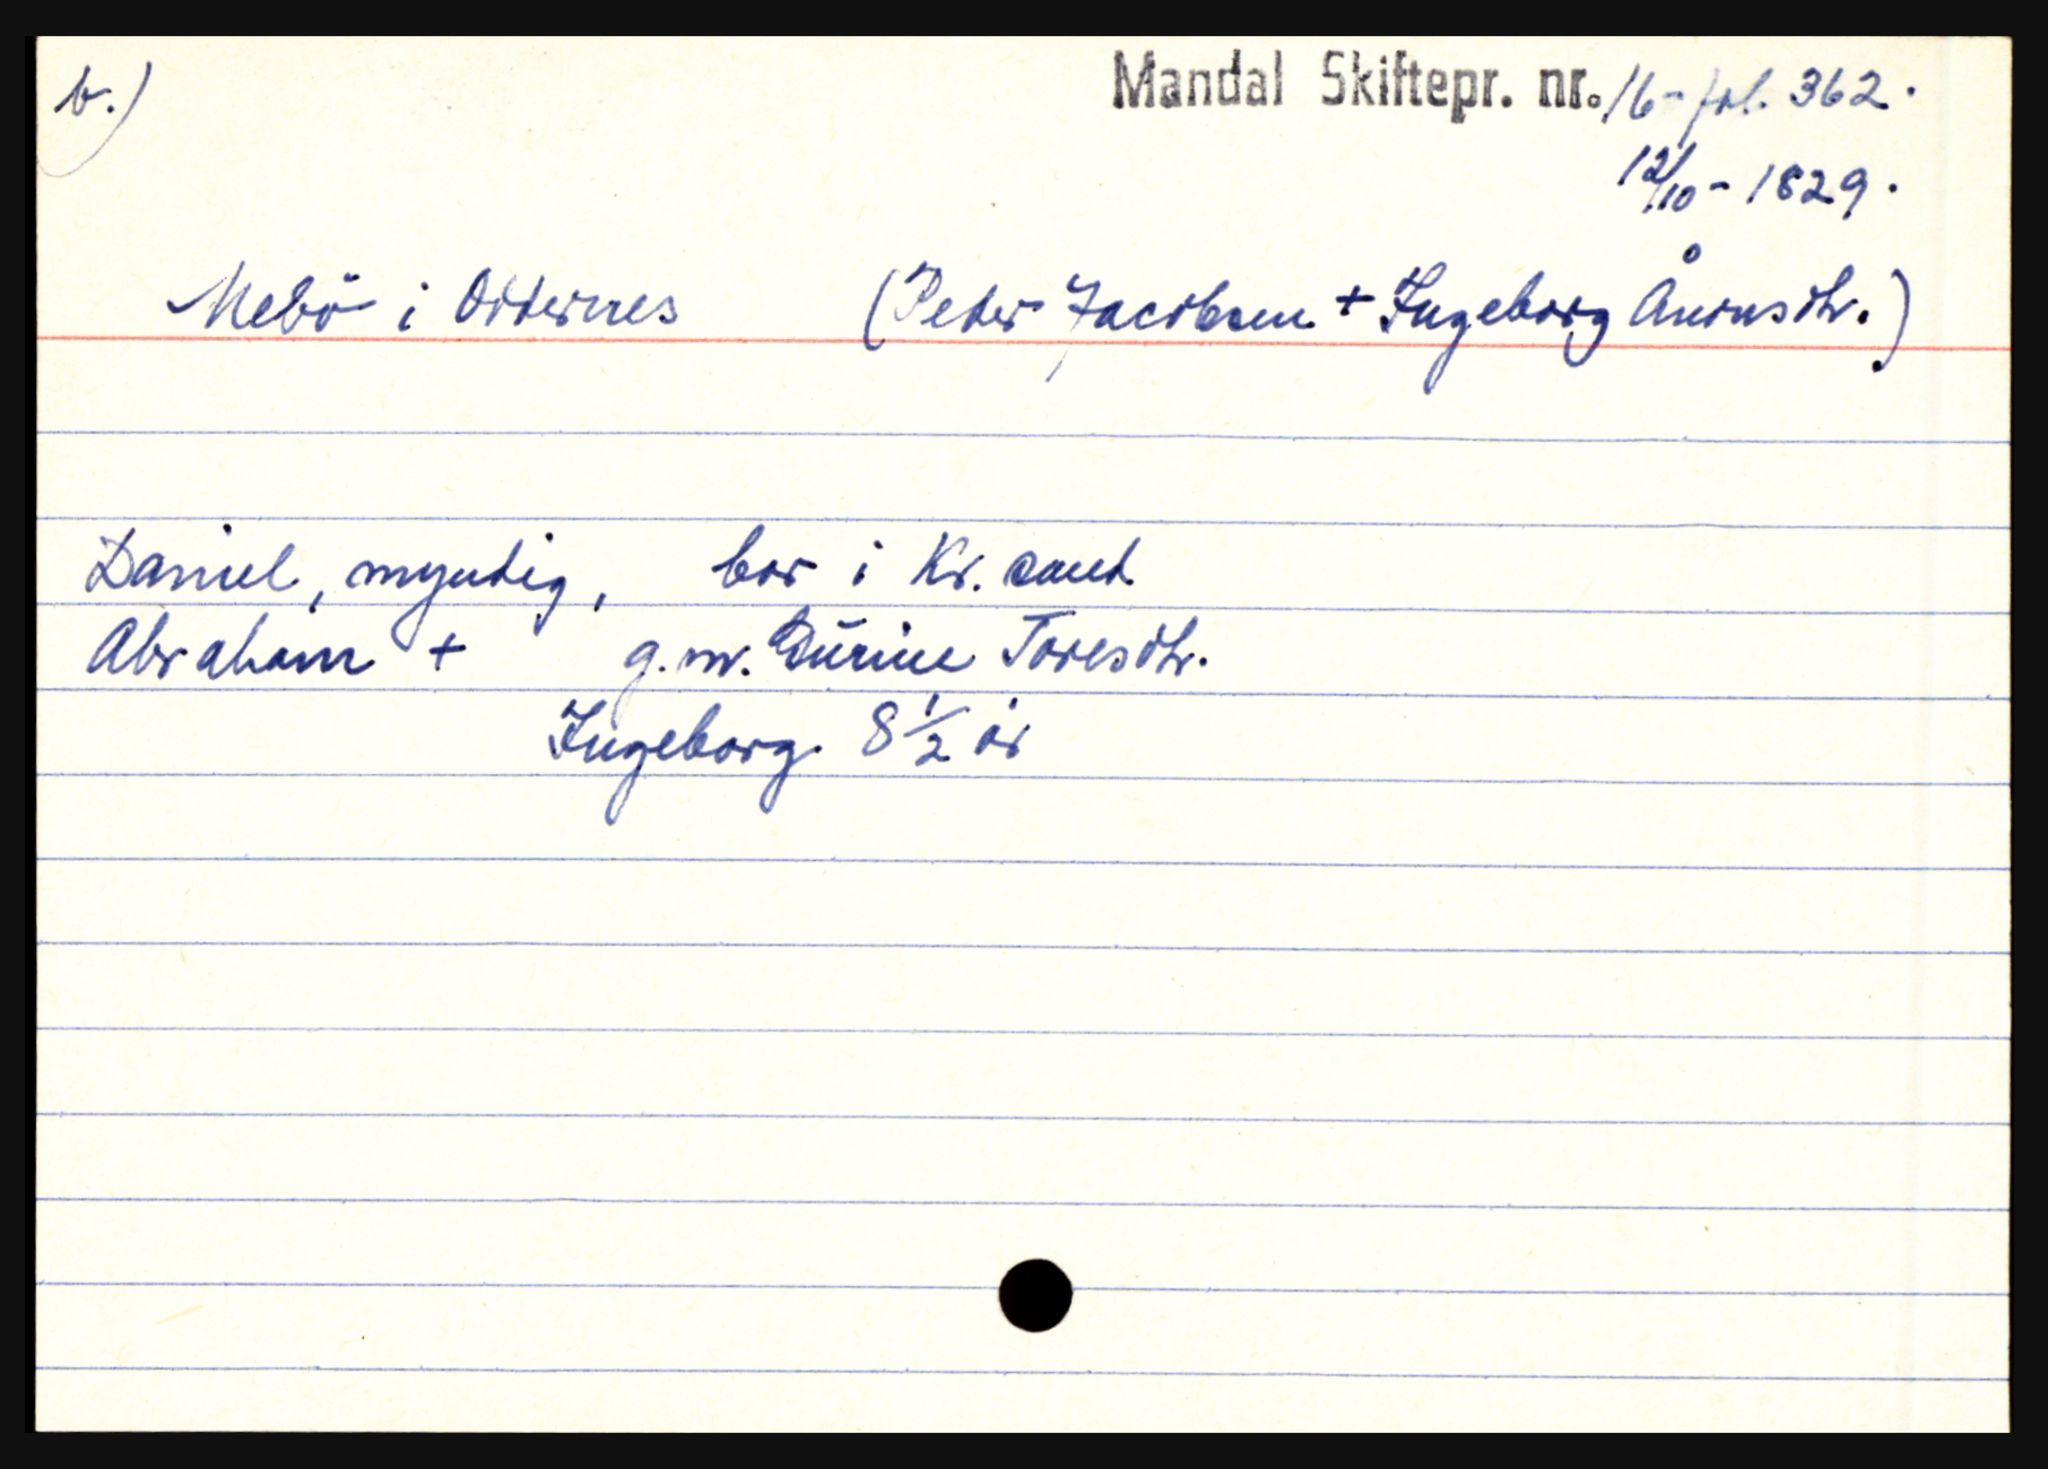 b.)
Mandal Skiftepr. nr. 16 - fol. 362.
12/10 - 1829.
Mebö i Otternes (Peder Jacobsen + Ingeborg Ånonsdtr.)
Daniel, myndig, bor i Kr.sand
Abraham + g.m. Toresdtr.
Ingeborg 8 1/2 år